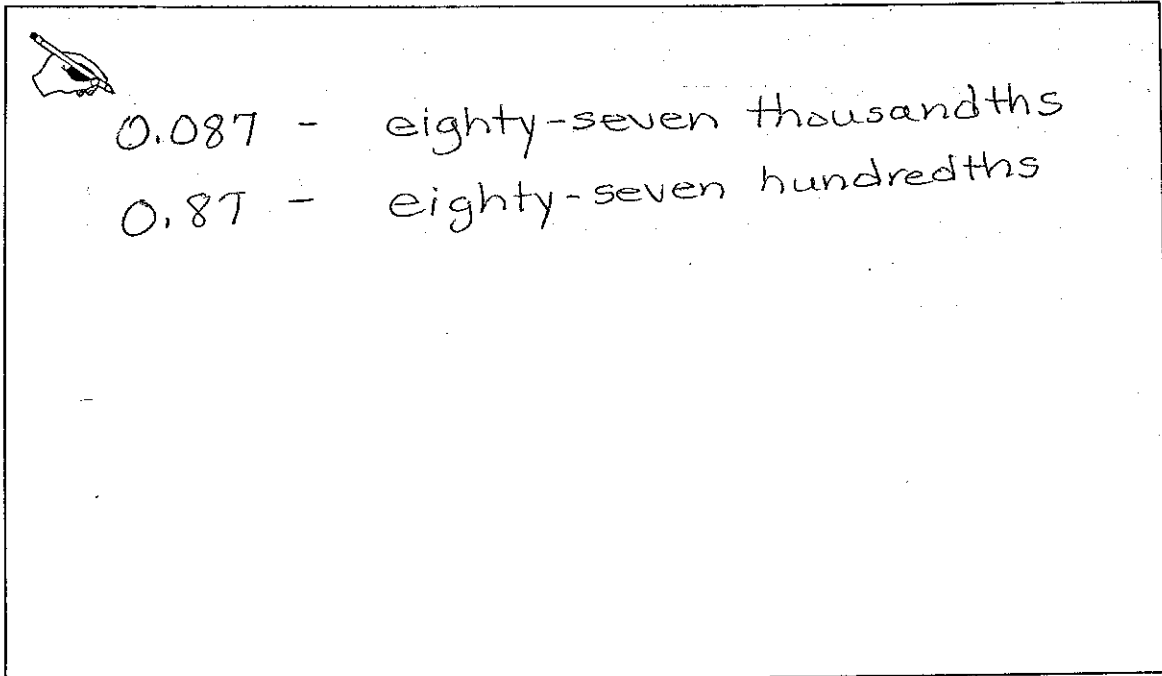 0.087 - eighty-seven thousandths
0.87 - eighty-seven hundredths